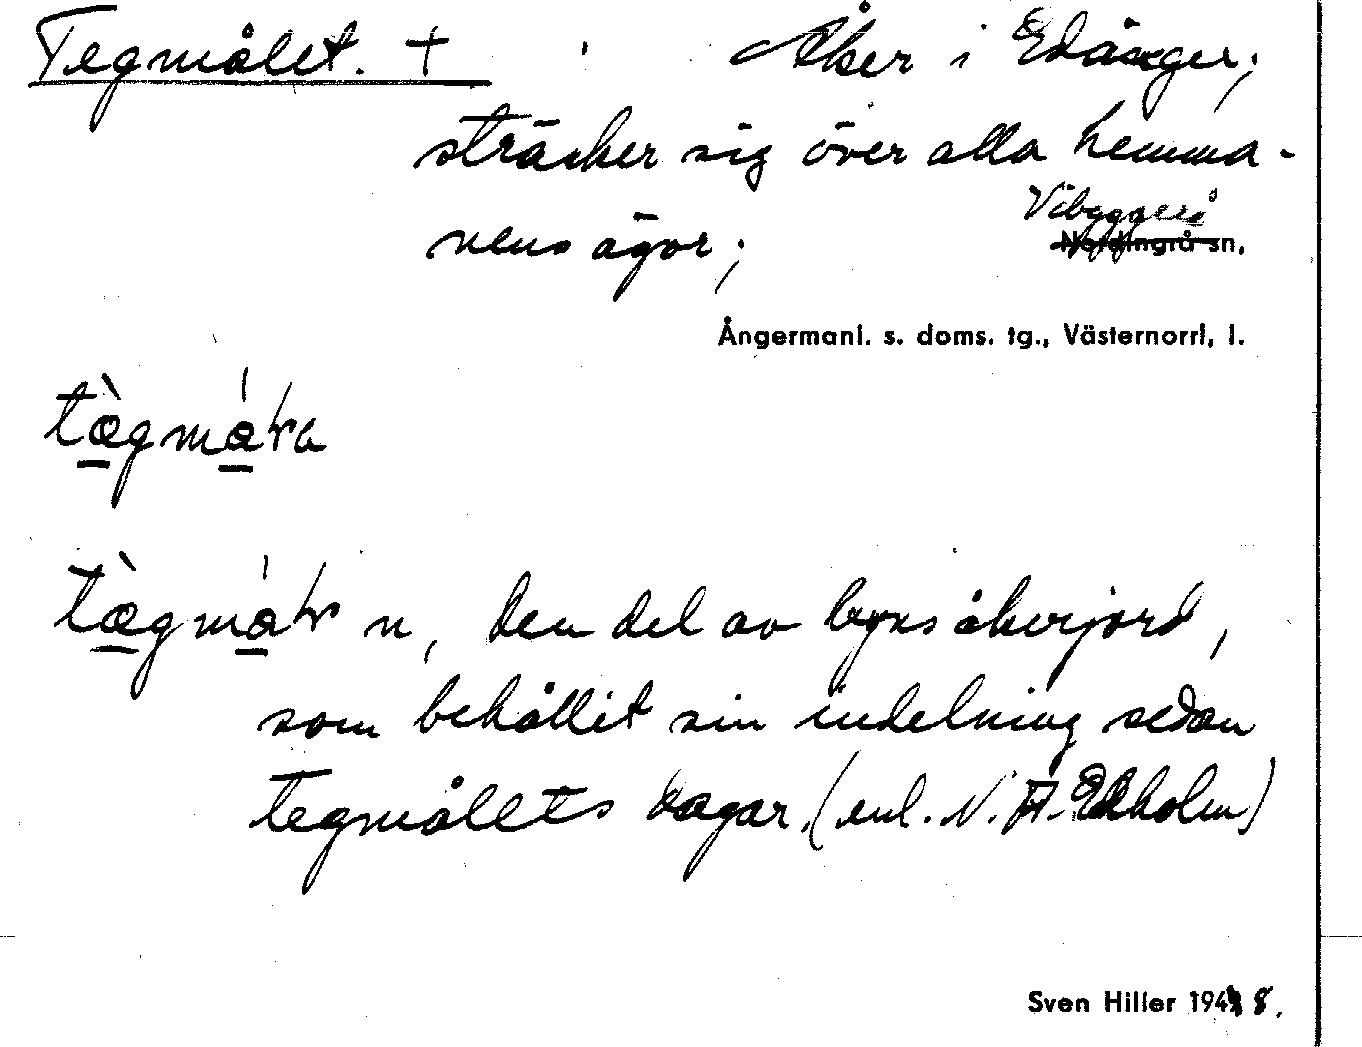 Tegmålet. + Åker i Edånger;
sträcker sig över alla hemma-
nens ägor;
Vibyggerå
Nordingrå sn,
Ångermanl. s. doms. tg., Västernorrl, l.
tæ̀gmá
tæ̀gmá n, den del av byns åkerjord,
som behållit sin indelning sedan
tegmålets dagar. (enl. N. A. Edholm)
Sven Hiller 1948.